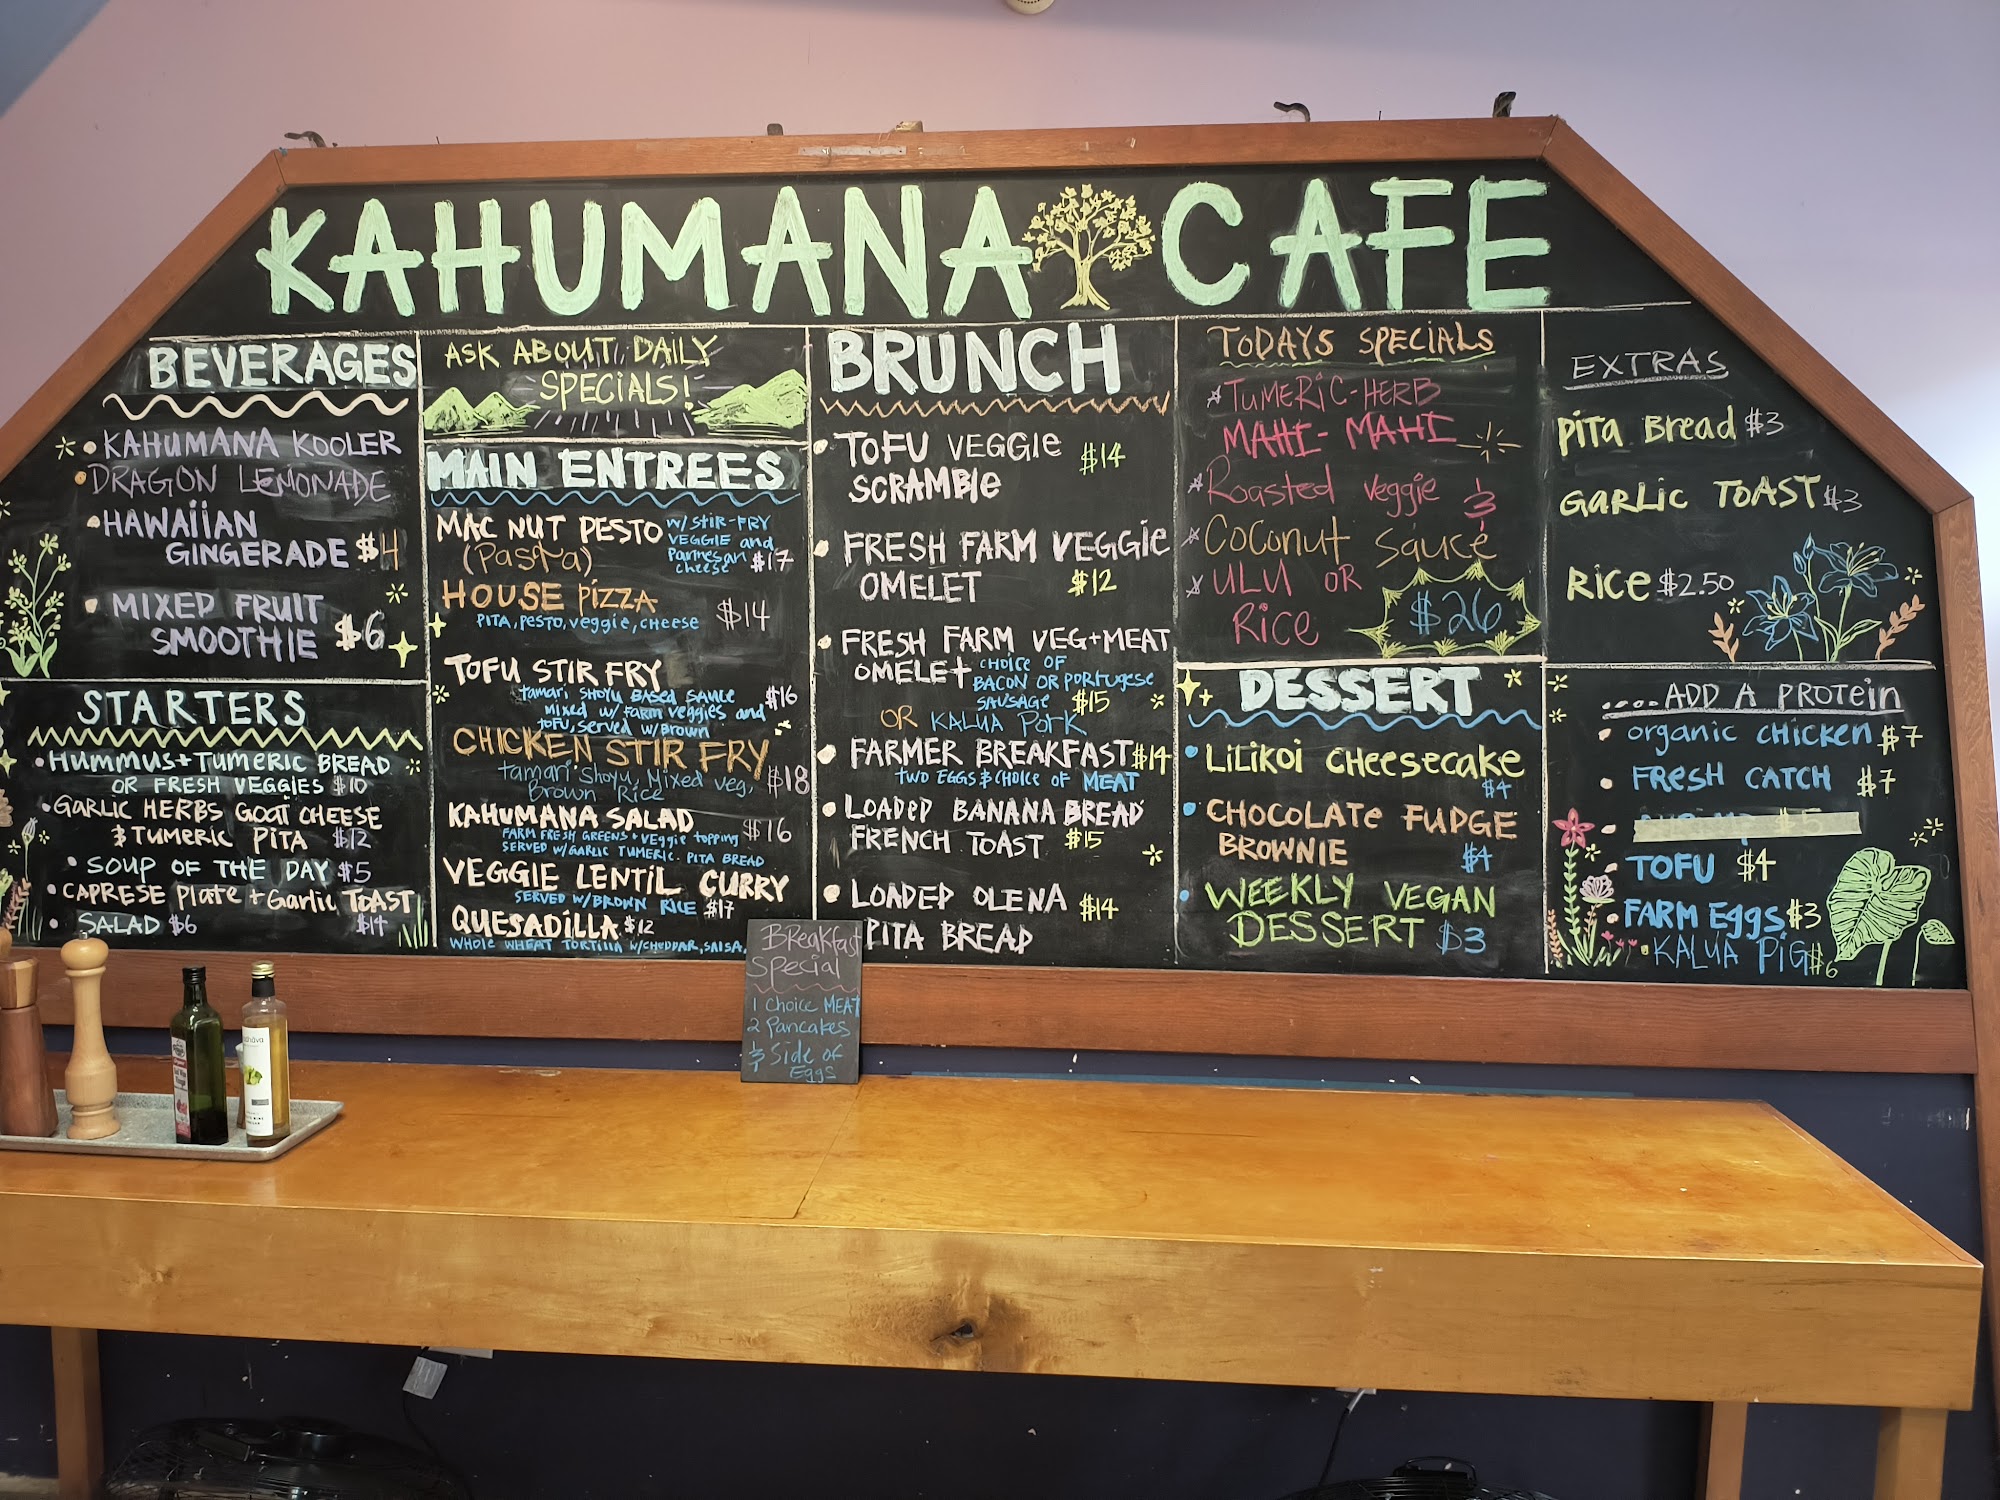 KAHUMANA CAFE
BEVERAGES
• KAHUMANA KOOLER
• DRAGON LEMONADE
• HAWAiiAN
GINGERADE $4
• MIXED FRUIT
SMOOTHIE $6
STARTERS
• HUMMUS + TUMERIC BREAD
OR FRESH VEGGIES $10
• GARLIC HERBS GOAT CHEESE
& TUMERIC PITA $12
• SOUP OF THE DAY $5
• CAPRESE Plate + Garlic TOAST
$14
• SALAD $6
ASK ABOUT DAILY
SPECIALS!
MAIN ENTREES
MAC NUT PESTO W/ STIR-FRY
VEGGIE and
(Pasta) Parmesan
cheese $17
HOUSE PIZZA $14
PITA, PESTO, veggie, CHEESE
TOFU STIR FRY
tamari SHOYU BASED SAUCE $16
MIXED W/ FARM VEGGIES and
TOFU, SERVED W/ BROWN
CHICKEN STIR FRY
tamari Shoyu, Mixed Veg, $18
Brown Rice
KAHUMANA SALAD $16
FARM FRESH GREENS + Veggie topping
SERVED W/ GARLIC TUMERIC PITA BREAD
VEGGIE LENTIL CURRY
SERVED W/ BROWN RICE $17
QUESADILLA $12
WHOLE WHEAT TORTILLA W/ CHEDDAR, SALSA,
BRUNCH
• TOFU VEGGIE $14
SCRAMBLE
• FRESH FARM VEGGIE
OMELET $12
• FRESH FARM VEG+MEAT
OMELET CHOICE OF
BACON OR PORTUGESE
SAUSAGE $15
OR KALUA PORK
• FARMER BREAKFAST $14
TWO EGGS & CHOICE OF MEAT
• LOADED BANANA BREAD
FRENCH TOAST $15
• LOADED OLENA $14
PITA BREAD
TODAYS SPECIALS
TUMERIC-HERB
MAHI-MAHI
Roasted Veggie
Coconut Sauce
ULU OR
Rice $26
DESSERT
• LILIKOI CHEESECAKE
$4
• CHOCOLATE FUDGE
BROWNIE $4
• WEEKLY VEGAN
DESSERT $3
EXTRAS
PITA BREAD $3
GARLIC TOAST $3
RICE $2.50
....ADD A PROTEIN
• organic CHICKEN $7
• FRESH CATCH $7
• TOFU $4
• FARM EGGS $3
• KALUA PIG $6
Breakfast
Special
1 Choice MEAT
2 Pancakes
Side of
Eggs